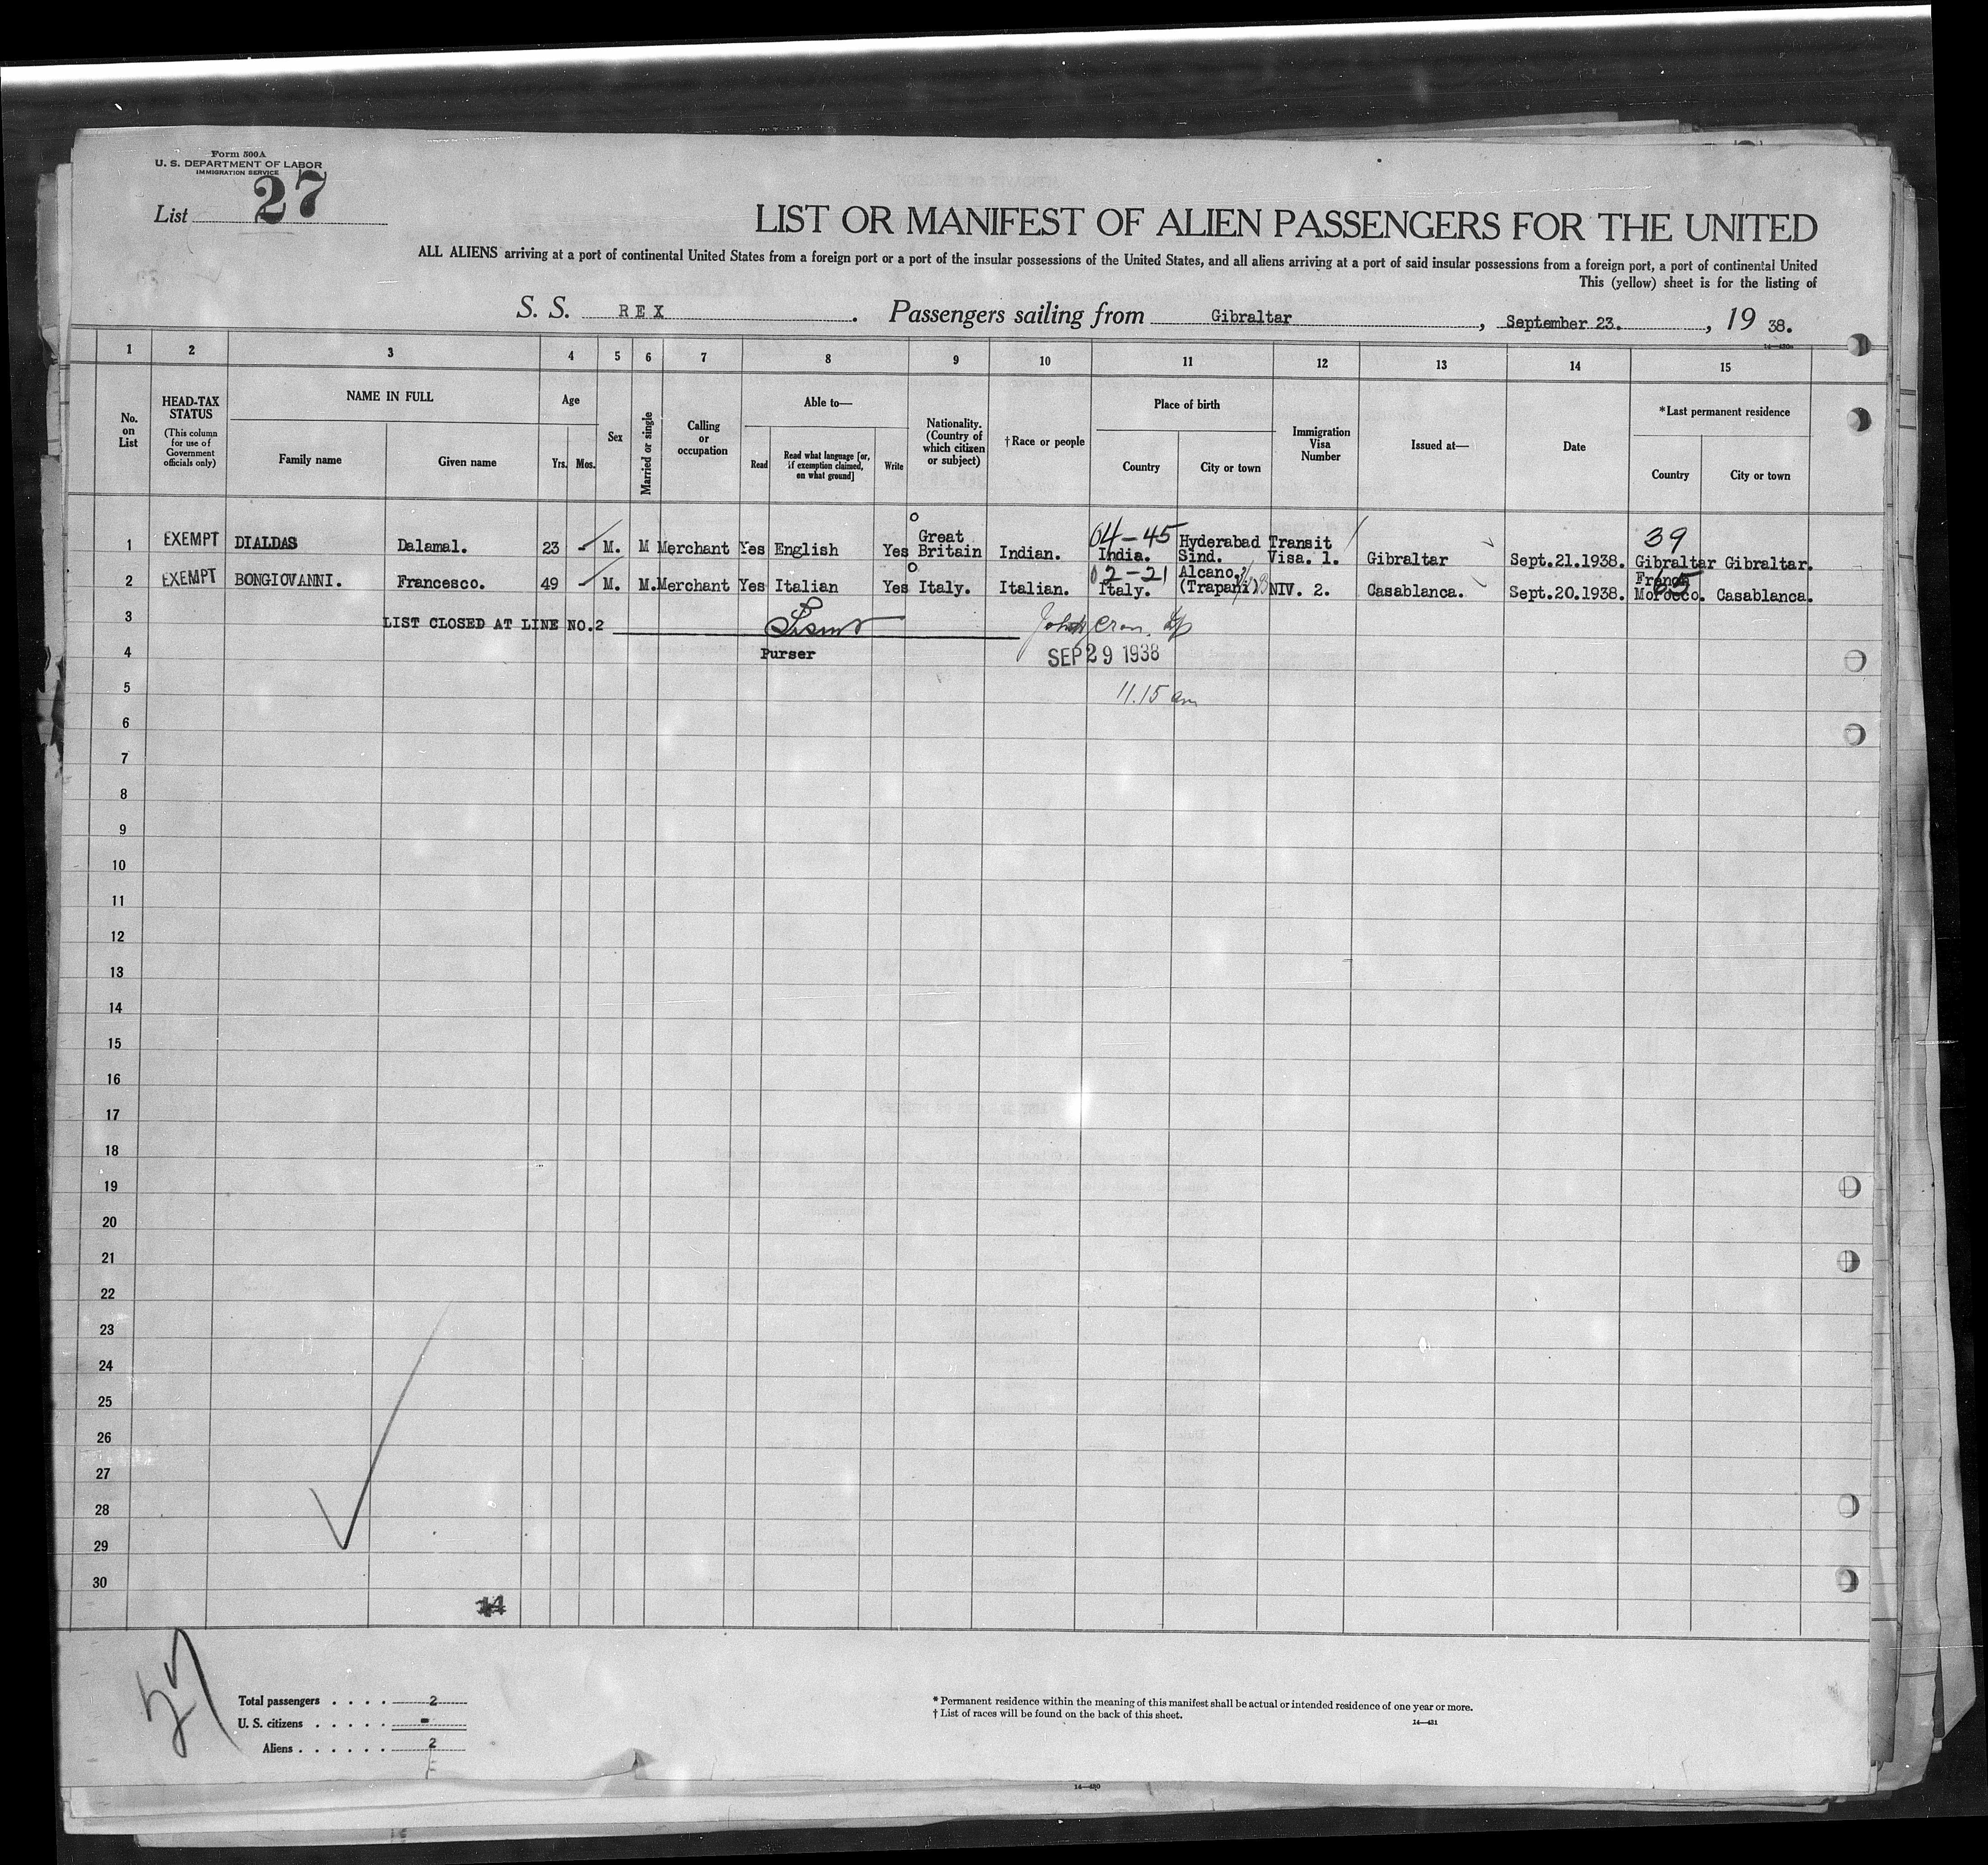 Form 500A
U. S. DEPARTMENT OF LABOR
IMMIGRATION SERVICE
List 27
LIST OR MANIFEST OF ALIEN PASSENGERS FOR THE UNITED
ALL ALIENS arriving at a port of continental United States from a foreign port or a port of the insular possessions of the United States, and all aliens arriving at a port of said insular possessions from a foreign port, a port of continental United
This (yellow) sheet is for the listing of
S. S. REX. Passengers sailing from Gibraltar, September 23., 19 38.
14—430a
1 2 3 4 5 6 7 8 9 10 11 12 13 14 15
No. on List
HEAD-TAX STATUS
(This column for use of Government officials only)
NAME IN FULL
Family name
Given name
Age
Yrs. Mos.
Sex
Married or single
Calling or occupation
Able to—
Read
Read what language [or, if exemption claimed, on what ground]
Write
Nationality. (Country of which citizen or subject)
†Race or people
Place of birth
Country
City or town
Immigration Visa Number
Issued at—
Date
*Last permanent residence
Country
City or town
04-45
39
1 EXEMPT DIALDAS Dalamal. 23 - M. M Merchant Yes English Yes Great Britain Indian. India. Hyderabad Sind. Transit Visa. 1. Gibraltar Sept.21.1938. Gibraltar Gibraltar.
02-21
65
2 EXEMPT BONGIOVANNI. Francesco. 49 - M. M. Merchant Yes Italian Yes Italy. Italian. Italy. Alcano, (Trapani) NIV. 2. Casablanca. Sept.20.1938. French Morocco. Casablanca.
3 LIST CLOSED AT LINE NO.2
4 Purser
SEP 29 1938
5 11.15 am
6
7
8
9
10
11
12
13
14
15
16
17
18
19
20
21
22
23
24
25
26
27
28
29
30
14
27
Total passengers . . . . 2
U. S. citizens . . . . . -
Aliens . . . . . . 2
* Permanent residence within the meaning of this manifest shall be actual or intended residence of one year or more.
† List of races will be found on the back of this sheet.
14—431
14—430